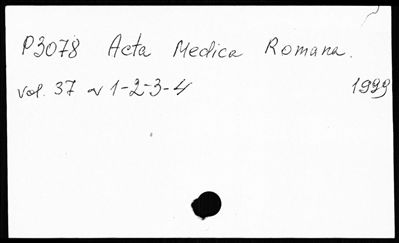 P3078 Acta Medica Romana.
vol. 37 N 1-2-3-4 1999